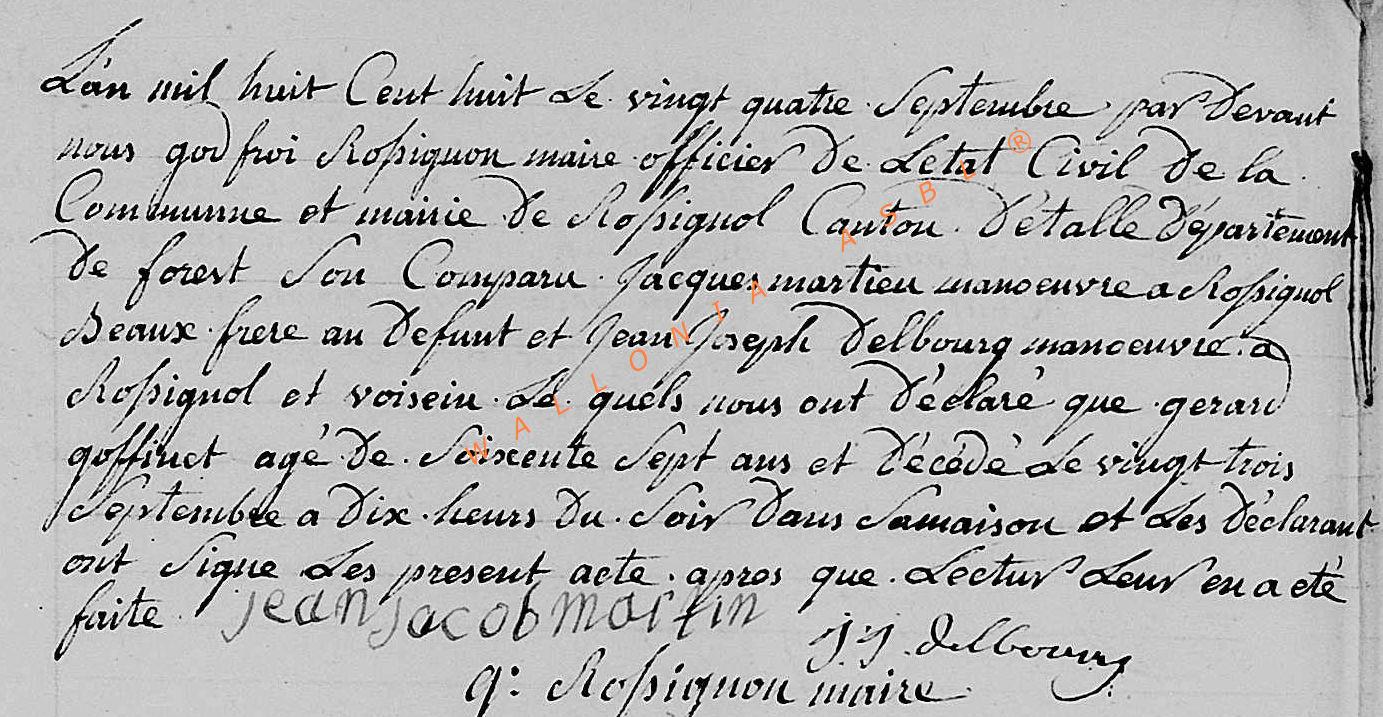 L'an mil huit Cent huit Le vingt quatre Septembre par Devant
nous godfroi Rossignon maire officier De Letat Civil De la
Communne et mairie De Rossignol Canton D'étalle Département
De forest Son Comparu Jacques martieu manoeuvre a Rossignol
Beaux frere au Defunt et Jean Joseph Delbourg manoeuvre a
Rossignol et voisein Le quels nous ont Déclaré que gerard
goffinet agé De Soixente Sept ans et Décédé Le vingt trois
Septembre a Dix heurs Du Soir Dans Samaison et Les Déclarant
ont Signe Les present acte apres que Lectur Leur en a eté
faite jean jacob martin
J.J. Delbourg
g: Rossignon maire
WALLONIA ASBL ®